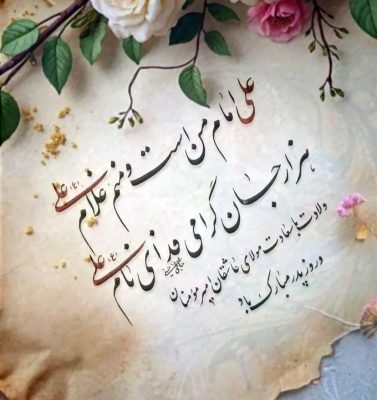 علی امام من است و منم غلام علی (ع)
هزار جان گرامی فدای نام علی (ع)
ولادت باسعادت مولای عاشقان امیرمؤمنان
و روز پدر مبارک باد